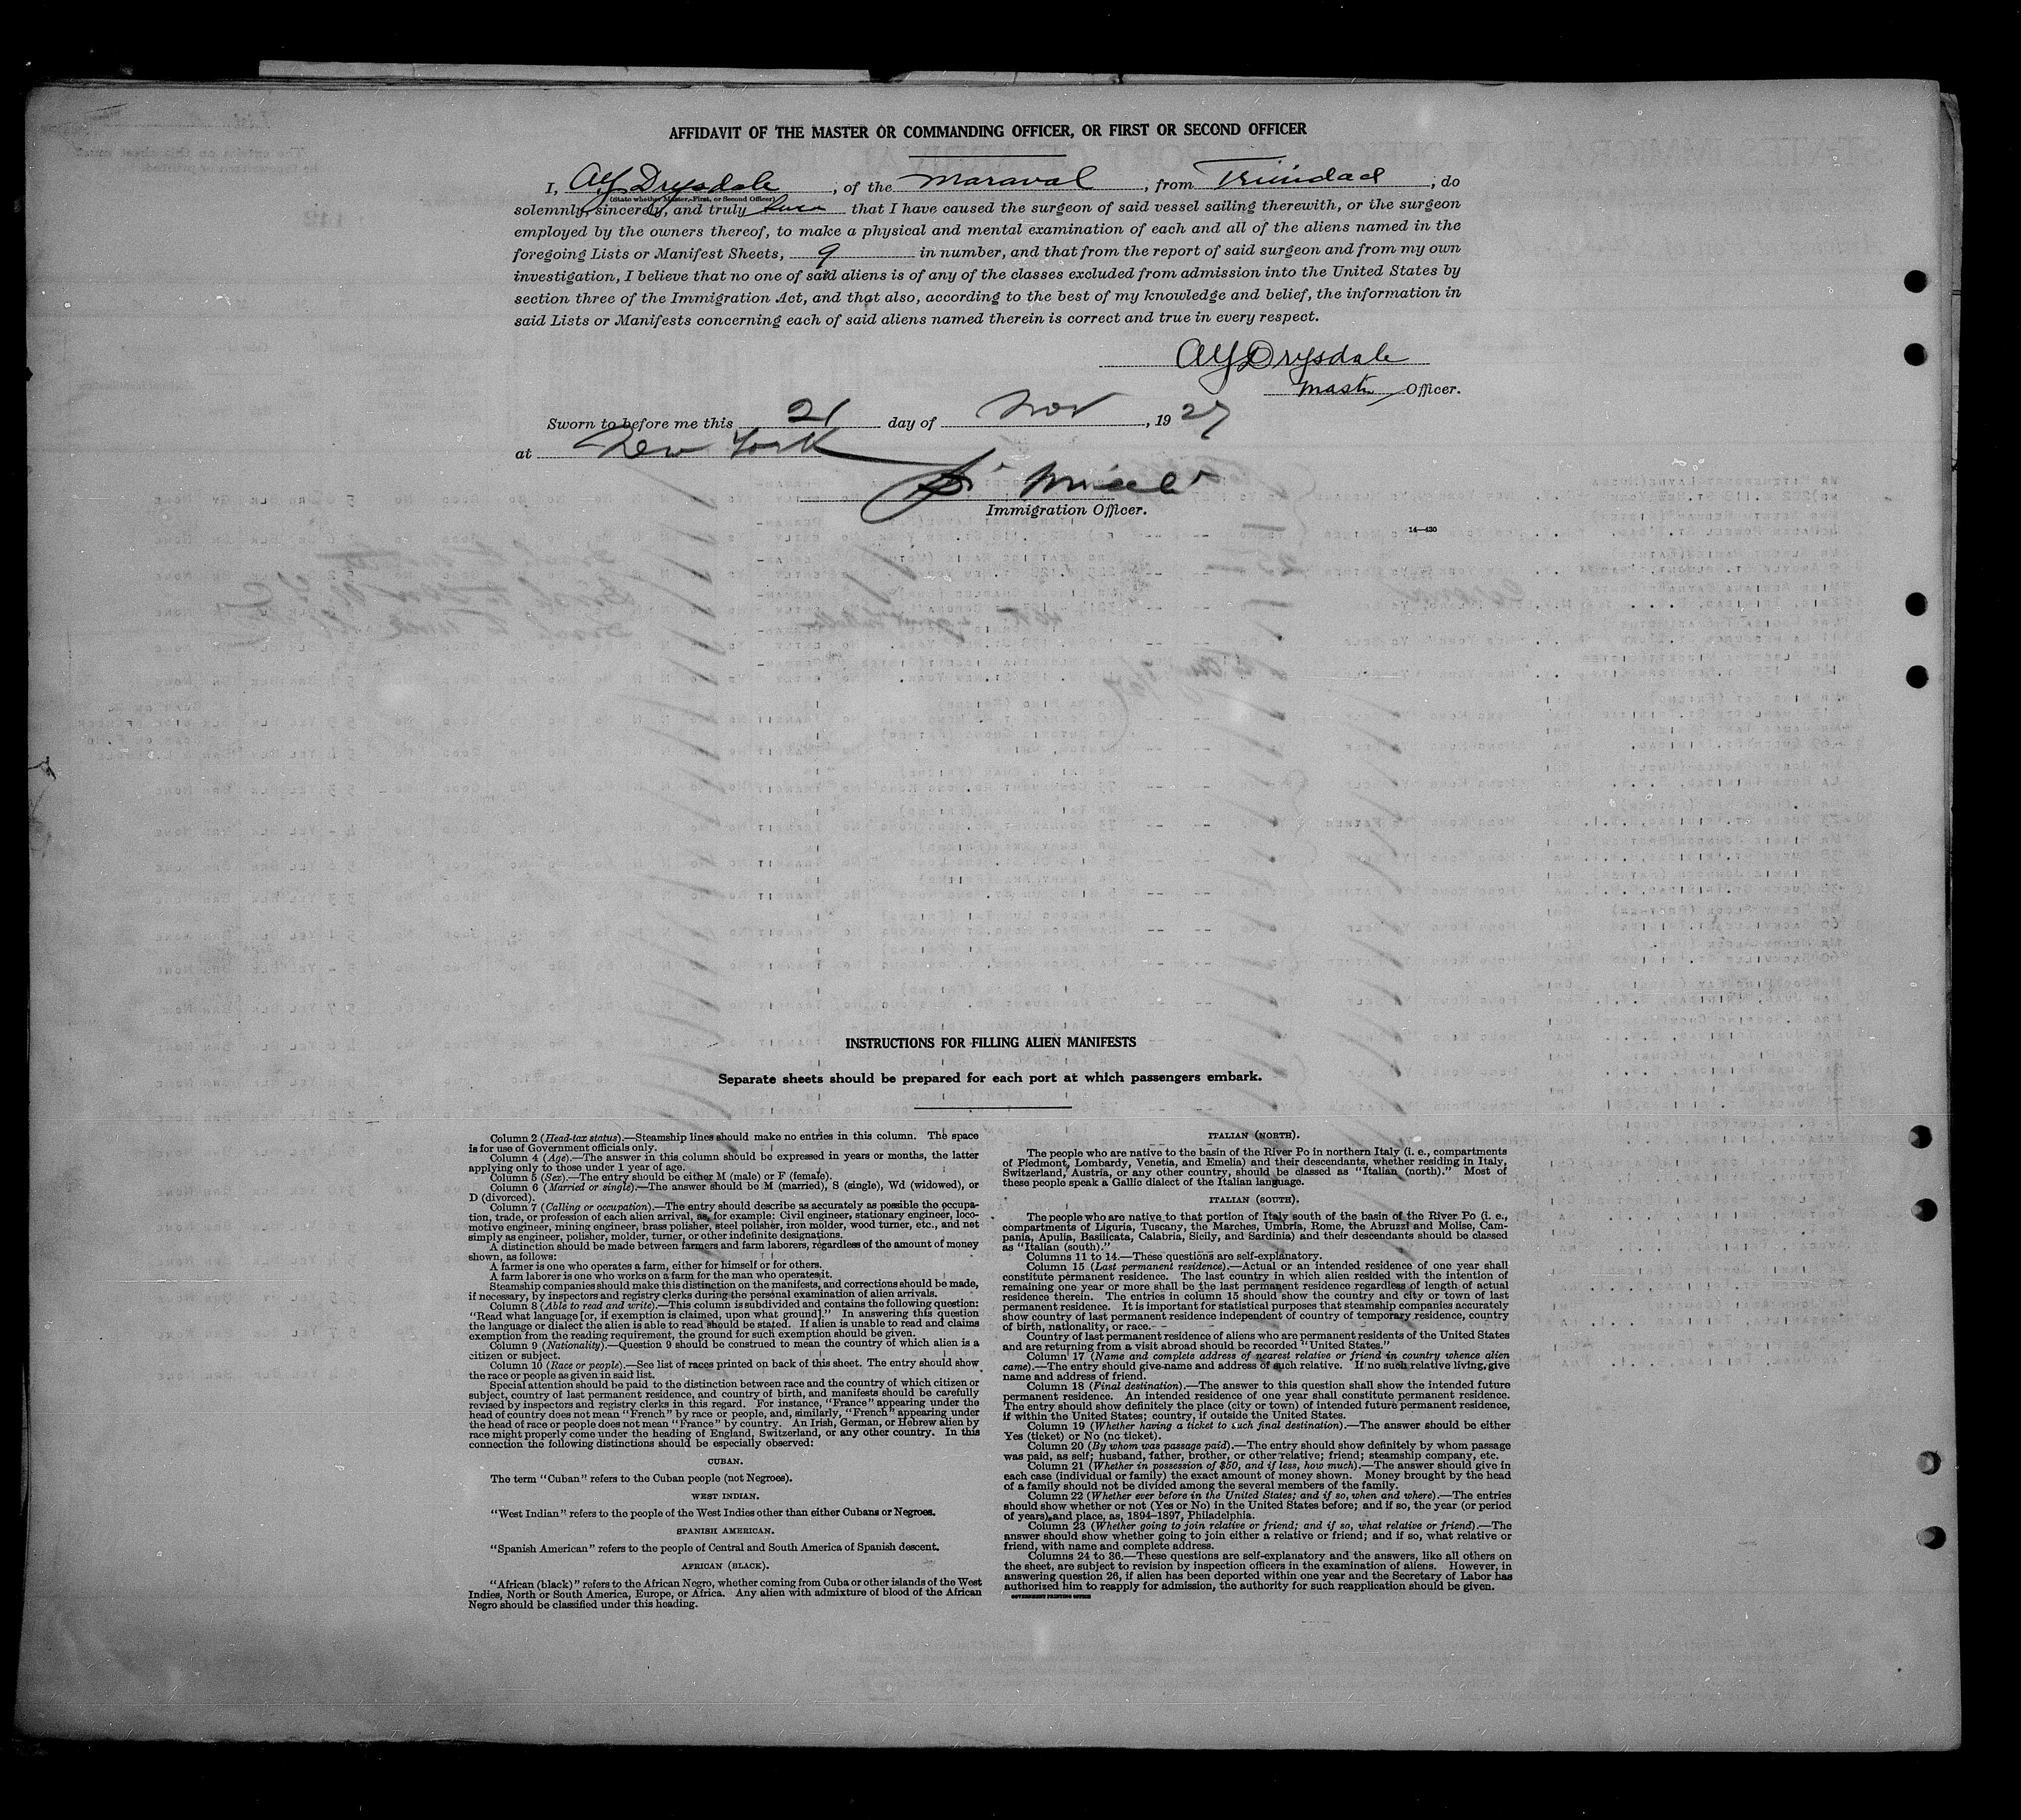 AFFIDAVIT OF THE MASTER OR COMMANDING OFFICER, OR FIRST OR SECOND OFFICER
I, A Y Drysdale, of the Maraval, from Trinidad, do
(State whether Master, First, or Second Officer)
solemnly, sincerely, and truly swear that I have caused the surgeon of said vessel sailing therewith, or the surgeon
employed by the owners thereof, to make a physical and mental examination of each and all of the aliens named in the
foregoing Lists or Manifest Sheets, 9 in number, and that from the report of said surgeon and from my own
investigation, I believe that no one of said aliens is of any of the classes excluded from admission into the United States by
section three of the Immigration Act, and that also, according to the best of my knowledge and belief, the information in
said Lists or Manifests concerning each of said aliens named therein is correct and true in every respect.
A Y Drysdale
Master Officer.
Sworn to before me this 21 day of Nov, 1927
at New York
Immigration Officer.
14—430
INSTRUCTIONS FOR FILLING ALIEN MANIFESTS
Separate sheets should be prepared for each port at which passengers embark.
Column 2 (Head-tax status).—Steamship lines should make no entries in this column. The space
is for use of Government officials only.
Column 4 (Age).—The answer in this column should be expressed in years or months, the latter
applying only to those under 1 year of age.
Column 5 (Sex).—The entry should be either M (male) or F (female).
Column 6 (Married or single).—The answer should be M (married), S (single), Wd (widowed), or
D (divorced).
Column 7 (Calling or occupation).—The entry should describe as accurately as possible the occupa-
tion, trade, or profession of each alien arrival, as, for example: Civil engineer, stationary engineer, loco-
motive engineer, mining engineer, brass polisher, steel polisher, iron molder, wood turner, etc., and not
simply as engineer, polisher, molder, turner, or other indefinite designations.
A distinction should be made between farmers and farm laborers, regardless of the amount of money
shown, as follows:
A farmer is one who operates a farm, either for himself or for others.
A farm laborer is one who works on a farm for the man who operates it.
Steamship companies should make this distinction on the manifests, and corrections should be made,
if necessary, by inspectors and registry clerks during the personal examination of alien arrivals.
Column 8 (Able to read and write).—This column is subdivided and contains the following question:
"Read what language [or, if exemption is claimed, upon what ground]." In answering this question
the language or dialect the alien is able to read should be stated. If alien is unable to read and claims
exemption from the reading requirement, the ground for such exemption should be given.
Column 9 (Nationality).—Question 9 should be construed to mean the country of which alien is a
citizen or subject.
Column 10 (Race or people).—See list of races printed on back of this sheet. The entry should show
the race or people as given in said list.
Special attention should be paid to the distinction between race and the country of which citizen or
subject, country of last permanent residence, and country of birth, and manifests should be carefully
revised by inspectors and registry clerks in this regard. For instance, "France" appearing under the
head of country does not mean "French" by race or people, and, similarly, "French" appearing under
the head of race or people does not mean "France" by country. An Irish, German, or Hebrew alien by
race might properly come under the heading of England, Switzerland, or any other country. In this
connection the following distinctions should be especially observed:
CUBAN.
The term "Cuban" refers to the Cuban people (not Negroes).
WEST INDIAN.
"West Indian" refers to the people of the West Indies other than either Cubans or Negroes.
SPANISH AMERICAN.
"Spanish American" refers to the people of Central and South America of Spanish descent.
AFRICAN (BLACK).
"African (black)" refers to the African Negro, whether coming from Cuba or other islands of the West
Indies, North or South America, Europe, or Africa. Any alien with admixture of blood of the African
Negro should be classified under this heading.
ITALIAN (NORTH).
The people who are native to the basin of the River Po in northern Italy (i. e., compartments
of Piedmont, Lombardy, Venetia, and Emelia) and their descendants, whether residing in Italy,
Switzerland, Austria, or any other country, should be classed as "Italian (north)." Most of
these people speak a Gallic dialect of the Italian language.
ITALIAN (SOUTH).
The people who are native to that portion of Italy south of the basin of the River Po (i. e.,
compartments of Liguria, Tuscany, the Marches, Umbria, Rome, the Abruzzi and Molise, Cam-
pania, Apulia, Basilicata, Calabria, Sicily, and Sardinia) and their descendants should be classed
as "Italian (south)."
Columns 11 to 14.—These questions are self-explanatory.
Column 15 (Last permanent residence).—Actual or an intended residence of one year shall
constitute permanent residence. The last country in which alien resided with the intention of
remaining one year or more shall be the last permanent residence regardless of length of actual
residence therein. The entries in column 15 should show the country and city or town of last
permanent residence. It is important for statistical purposes that steamship companies accurately
show country of last permanent residence independent of country of temporary residence, country
of birth, nationality, or race.
Country of last permanent residence of aliens who are permanent residents of the United States
and are returning from a visit abroad should be recorded "United States."
Column 17 (Name and complete address of nearest relative or friend in country whence alien
came).—The entry should give name and address of such relative. If no such relative living, give
name and address of friend.
Column 18 (Final destination).—The answer to this question shall show the intended future
permanent residence. An intended residence of one year shall constitute permanent residence.
The entry should show definitely the place (city or town) of intended future permanent residence,
if within the United States; country, if outside the United States.
Column 19 (Whether having a ticket to such final destination).—The answer should be either
Yes (ticket) or No (no ticket).
Column 20 (By whom was passage paid).—The entry should show definitely by whom passage
was paid, as self; husband, father, brother, or other relative; friend; steamship company, etc.
Column 21 (Whether in possession of $50, and if less, how much).—The answer should give in
each case (individual or family) the exact amount of money shown. Money brought by the head
of a family should not be divided among the several members of the family.
Column 22 (Whether ever before in the United States; and if so, when and where).—The entries
should show whether or not (Yes or No) in the United States before; and if so, the year (or period
of years) and place, as, 1894–1897, Philadelphia.
Column 23 (Whether going to join relative or friend; and if so, what relative or friend).—The
answer should show whether going to join either a relative or friend; and if so, what relative or
friend, with name and complete address.
Columns 24 to 36.—These questions are self-explanatory and the answers, like all others on
the sheet, are subject to revision by inspection officers in the examination of aliens. However, in
answering question 26, if alien has been deported within one year and the Secretary of Labor has
authorized him to reapply for admission, the authority for such reapplication should be given.
GOVERNMENT PRINTING OFFICE